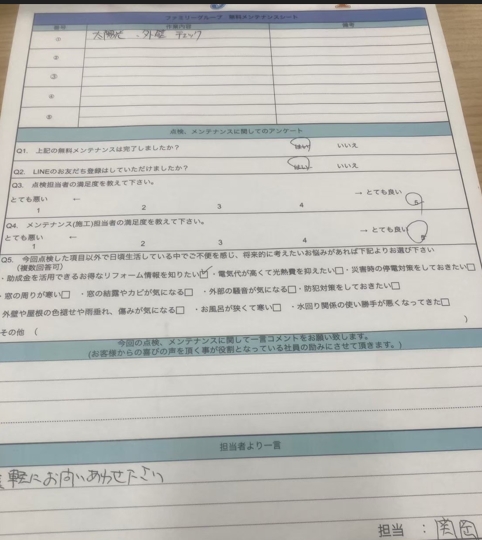 ファミリーグループ 無料メンテナンスシート
番号 作業内容 備考
① 太陽光、外壁 チェック
②
③
④
⑤
点検、メンテナンスに関してのアンケート
Q1. 上記の無料メンテナンスは完了しましたか? はい いいえ
Q2. LINEのお友だち登録はしていただけましたか? はい いいえ
Q3. 点検担当者の満足度を教えて下さい。
とても悪い ← → とても良い
1 2 3 4 5
Q4. メンテナンス(施工)担当者の満足度を教えて下さい。
とても悪い ← → とても良い
1 2 3 4 5
Q5. 今回点検した項目以外で日頃生活している中でご不便を感じ、将来的に考えたいお悩みがあれば下記よりお選び下さい
(複数回答可)
・助成金を活用できるお得なリフォーム情報を知りたい☑・電気代が高くて光熱費を抑えたい□・災害時の停電対策をしておきたい□
・窓の周りが寒い□ ・窓の結露やカビが気になる□ ・外部の騒音が気になる□・防犯対策をしておきたい□
外壁や屋根の色褪せや雨垂れ、傷みが気になる□ ・お風呂が狭くて寒い□ ・水回り関係の使い勝手が悪くなってきた□
その他 ( )
今回の点検、メンテナンスに関して一言コメントをお願い致します。
(お客様からの喜びの声を頂く事が役割となっている社員の励みにさせて頂きます。)
担当者より一言
軽にお問いあわせください
担当 : 関岡